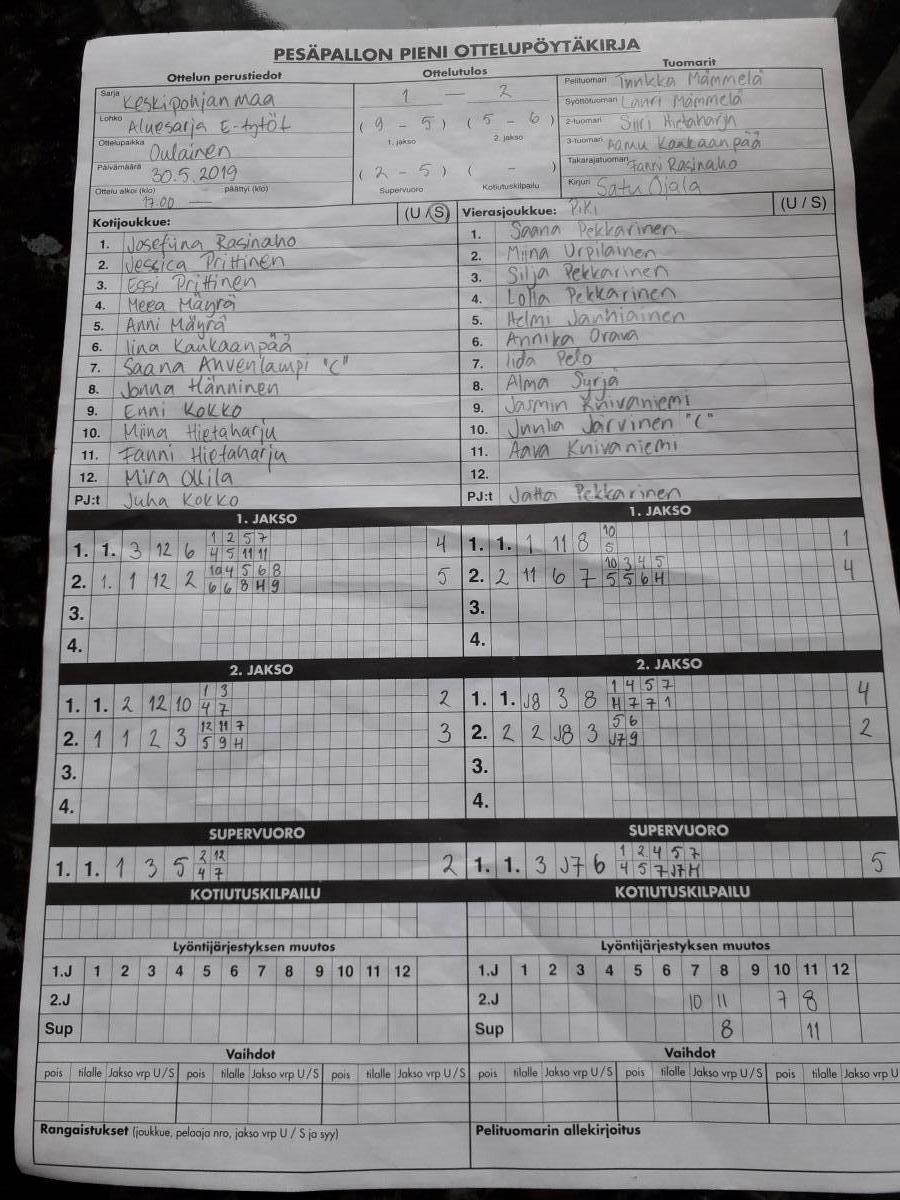 PESÄPALLON PIENI OTTELUPÖYTÄKIRJA
Ottelun perustiedot
Sarja Keskipohjanmaa
Lohko Aluesarja E-tytöt
Ottelupaikka Oulainen
Päivämäärä 30.5.2019
Ottelu alkoi (klo) päättyi (klo)
17.00 —
Ottelutulos
1 — 2
(9 - 5) (5 - 6)
1. jakso 2. jakso
(2 - 5) ( - )
Supervuoro Kotiutuskilpailu
Tuomarit
Pelituomari Tuukka Mämmelä
Syöttötuomari Lauri Mämmelä
2-tuomari Siiri Hietaharju
3-tuomari Aamu Kankaanpää
Takarajatuomari Fanni Rasinaho
Kirjuri Satu Ojala
Kotijoukkue: (U / S)
1. Josefiina Rasinaho
2. Jessica Prittinen
3. Essi Prittinen
4. Meea Mäyrä
5. Anni Mäyrä
6. Iina Kankaanpää
7. Saana Ahvenlampi "C"
8. Jonna Hänninen
9. Enni Kokko
10. Miina Hietaharju
11. Fanni Hietaharju
12. Mira Ollila
PJ:t Juha Kokko
Vierasjoukkue: PiKi (U / S)
1. Saana Pekkarinen
2. Miina Urpilainen
3. Silja Pekkarinen
4. Lotta Pekkarinen
5. Helmi Janhiainen
6. Annika Orava
7. Iida Pelo
8. Alma Syrjä
9. Jasmin Knivaniemi
10. Juulia Järvinen "C"
11. Aava Knivaniemi
12.
PJ:t Jatta Pekkarinen
1. JAKSO
1 2 5 7
1. 1. 3 12 6 4 5 11 11 4
10 4 5 6 8
2. 1. 1 12 2 6 6 8 H 9 5
3.
4.
1. JAKSO
10
1. 1. 1 11 8 5 1
10 3 4 5
2. 2 11 6 7 5 5 6 H 4
3.
4.
2. JAKSO
1 3
1. 1. 2 12 10 4 7 2
12 11 7
2. 1 1 2 3 5 9 H 3
3.
4.
2. JAKSO
1 4 5 7
1. 1. J8 3 8 H 7 7 1 4
5 6
2. 2 2 J8 3 J7 9 2
3.
4.
SUPERVUORO
2 12
1. 1. 1 3 5 4 7 2
SUPERVUORO
1 2 4 5 7
1. 1. 3 J7 6 4 5 7 J7 H 5
KOTIUTUSKILPAILU
KOTIUTUSKILPAILU
Lyöntijärjestyksen muutos
1.J 1 2 3 4 5 6 7 8 9 10 11 12
2.J
Sup
Lyöntijärjestyksen muutos
1.J 1 2 3 4 5 6 7 8 9 10 11 12
2.J 10 11 7 8
Sup 8 11
Vaihdot
pois tilalle Jakso vrp U / S pois tilalle Jakso vrp U / S pois tilalle Jakso vrp U / S
Vaihdot
pois tilalle Jakso vrp U / S pois tilalle Jakso vrp U / S pois tilalle Jakso vrp U
Rangaistukset (joukkue, pelaaja nro, jakso vrp U / S ja syy)
Pelituomarin allekirjoitus